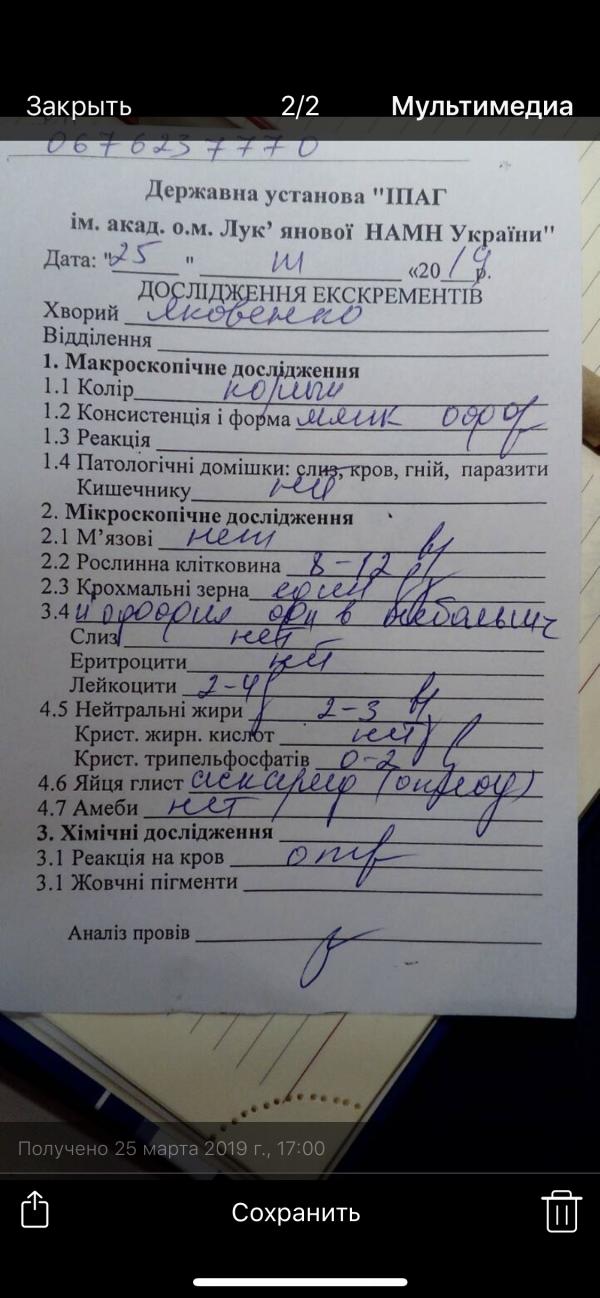 Закрыть 2/2 Мультимедиа
0676237770
Державна установа "ІПАГ
ім. акад. о.м. Лук’ янової НАМН України"
Дата: "25" III «2019р.
ДОСЛІДЖЕННЯ ЕКСКРЕМЕНТІВ
Хворий Яковенко
Відділення
1. Макроскопічне дослідження
1.1 Колір
1.2 Консистенція і форма мягк оформ
1.3 Реакція
1.4 Патологічні домішки: слиз, кров, гній, паразити
Кишечнику нет
2. Мікроскопічне дослідження
2.1 М’язові нет
2.2 Рослинна клітковина 8-12
2.3 Крохмальні зерна един
3.4 в
Слиз нет
Еритроцити нет
Лейкоцити 2-4
4.5 Нейтральні жири 2-3
Крист. жирн. кислот нет
Крист. трипельфосфатів 0-2
4.6 Яйця глист аскарид
4.7 Амеби нет
3. Хімічні дослідження
3.1 Реакція на кров отр
3.1 Жовчні пігменти
Аналіз провів
Получено 25 марта 2019 г., 17:00
Сохранить